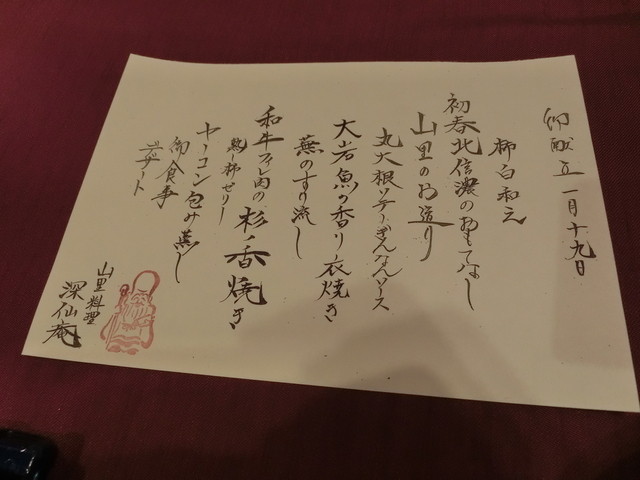 御献立 一月十九日
柳白和え
初春北信濃のおもてなし
山里のお造り
丸大根ソテーぎんなんソース
大岩魚の香り衣焼き
蕪のすり流し
和牛フィレ肉の杉ノ香焼き
熟し柿ゼリー
ヤーコン包み蒸し
御食事
デザート
山里料理
深仙庵